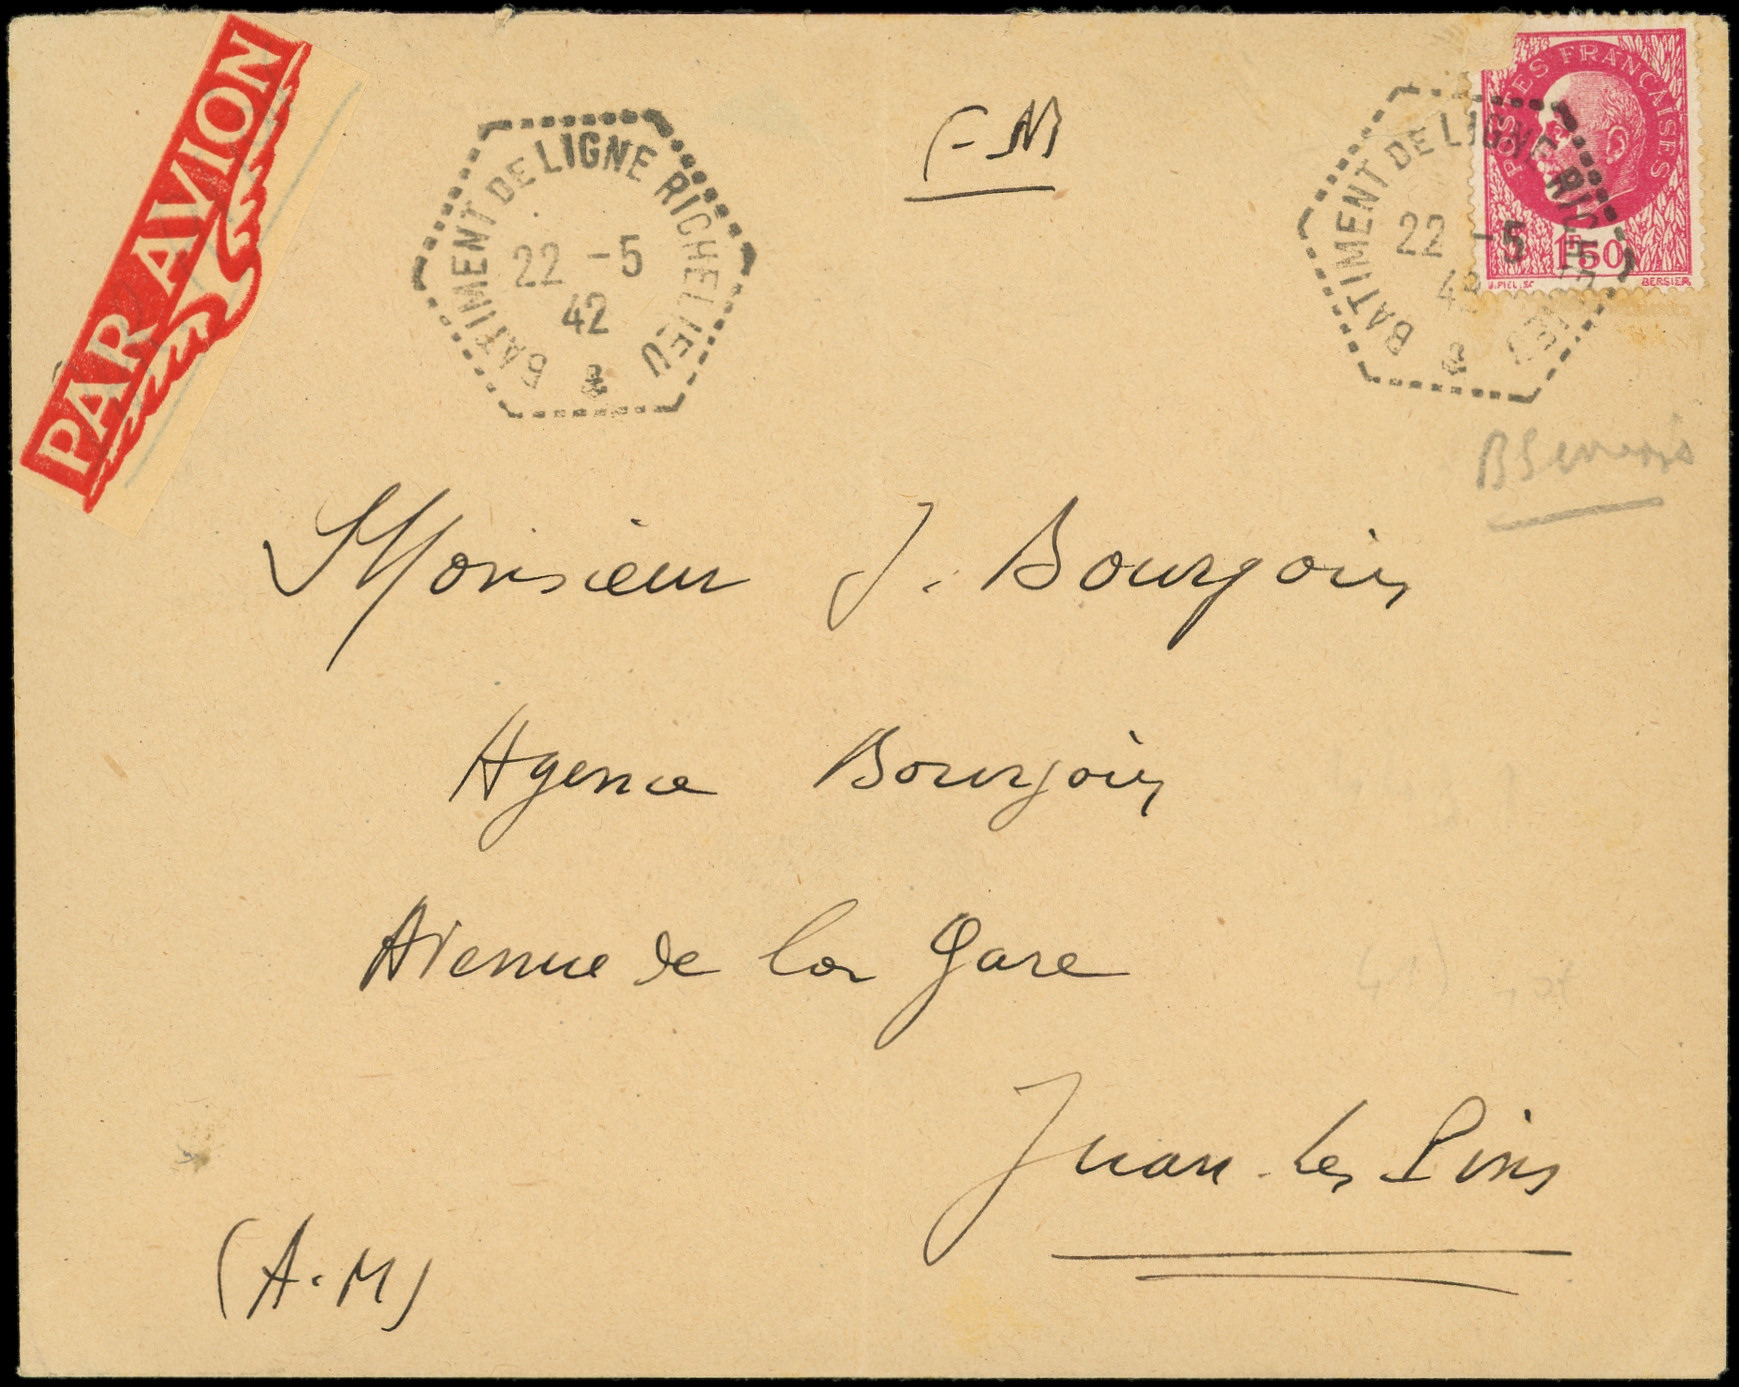 PAR AVION
BATIMENT DE LIGNE RICHELIEU
22 -5
42
F-M
BATIMENT DE LIGNE RICHELIEU
22 -5
42
POSTES FRANÇAISES
1F50
J.PIEL.SC BERSIER
Monsieur J. Bourgoin
Agence Bourgoin
Avenue de la Gare
Juan-les Pins
(A.M)